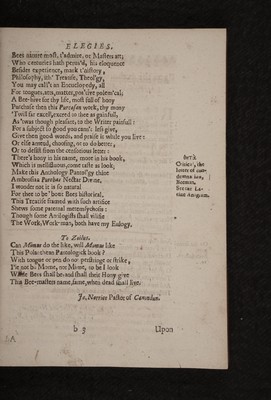 ELEGIES.
Bees nature most, t'admire, or Masters art;
Who centuries hath perus'd, his eloquence
Besides experience, mark t'ahistory,
Philosophy, ith' Treatise, Theol'gy,
You may call't an Encyclopedy, all
For tongues, arts, matter, pos'tive polem'cal;
A Bee-hive for thy life, most full of hony
Purchase then this Parnassus work, thy mony
'Twill far excell, exceed to thee as gainfull,
As 'twas though pleasant, to the Writer painfull:
For a subject so good you cann't less give,
Give then good words, and praise it while you live:
Or else amend, choosing, or to do better;
Or to desist from the censorious letter:
There's hony in his name, more in his book,
Which is mellifluous, come taste as look,
Make this Anthology Panteol'gy thine
Ambrosiaa Purchas Nectar Divine,
I wonder not it is so natural
For thee to be 'bout Bees historical,
This Treatise framed with such artifice
Shews some parental metempsychosis:
Though some Antilogists shall vilifie
The Work, Work-man, both have my Eulogy.
Both
Critics, the
one
Roman,
To Zoilus.
Can Momus do the like, will Momus like
This Polarchean Pantologick book?
With tongue or pen do not prestringe or strike,
Be not b: Miome, not Mome, to be I look
While Bees shall be, and shall their Hony give
The Bee-masters name, fame, when dead shall live.
Jo. Norrice Pastor of
b 3
Upon